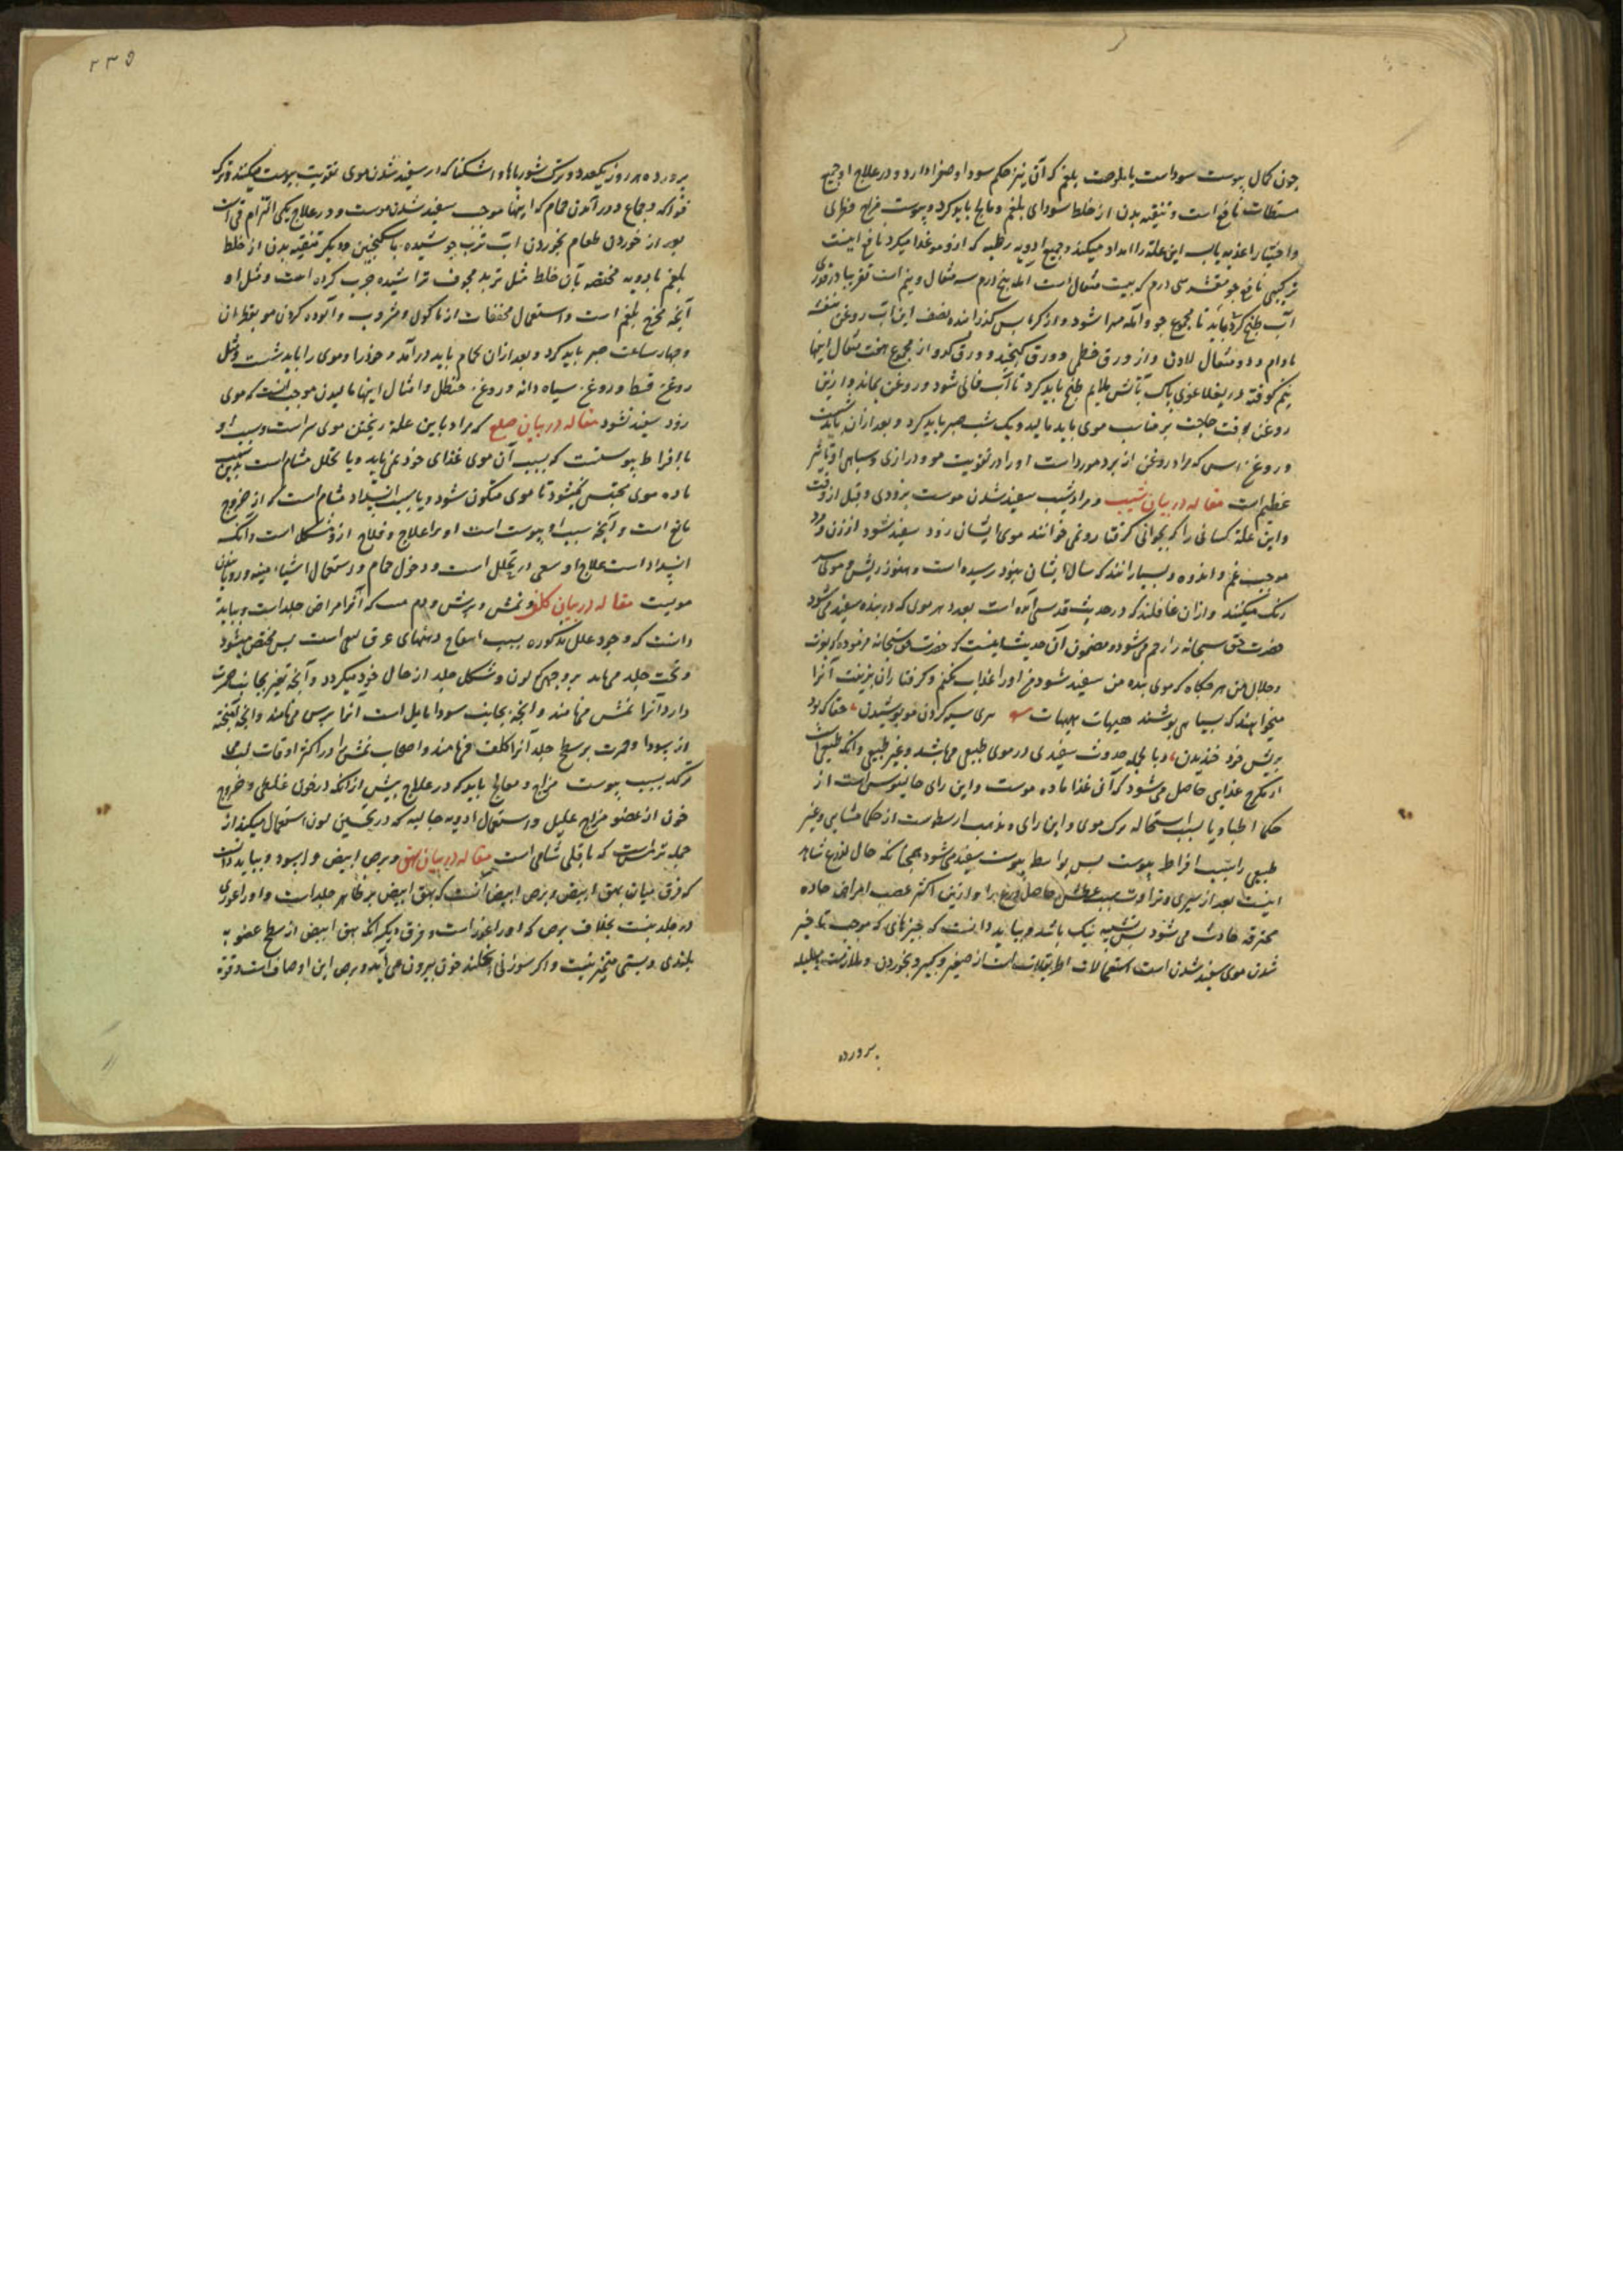 چون کمال یبوست سوداست یا ملوحت بلغم که آن نیز حکم سودا و صفرا دارد و در علاج او جمیع
نافع است و تنقیه بدن از خلط سودای بلغم و مالح باید کرد و یبوست مزاج
و اختیار اغذیه یابسه این علة را امداد میکند و جمیع ادویه رطبه که ازو مو غذا میکرد نافع اینست
ترکیبی نافع جو مقشر سی درم که بیست مثقال است آمله پنج درم سه مثقال و نیم است تقریبا در قدری
آب طبخ کرد باید تا مجموع جو و آمله مهرا شود و از کرباس گذرانده بنصف این آب روغن بنفشه
بادام و دو مثقال لادن و از ورق خطمی و ورق کنجد و ورق کدو از مجموع هفت مثقال اینها
نیم کوفته در پاک بآتش ملایم طبخ باید کرد تا آب فانی شود و روغن بماند و ازین
روغن وقت حاجت بر مناسب موی باید مالید و یک شب صبر باید کرد و بعد از آن باید شست
و روغن اس که مراد روغن از برد مورد است او را در تقویت مو و درازی و سیاهی او تاثیر
عظیم است مقاله در بیان شیب و مراد شیب سفید شدن موست بزودی و قبل از وقت
و این علة کسانی را که بجوانی گرفتارو نمی خوانند موی ایشان زود سفید شود از زن و مرد
موجب غم و اندوه و بسیار انند که سال ایشان بنود رسیده است و هنوز ریش و موی سر
رنگ میکنند و ازان غافلند که در حدیث قدسی آمده است بعدد هر موی که در بنده سفید می شود
حضرت حق سبحانه را رحم می شود و مضمون آن حدیث اینست که حضرت حق سبحانه فرموده که بعزت
و جلال من هر گاه که موی بنده من سفید شود من او را عذاب نکنم و گرفتاران بزینت آنرا
میخواهند که بسیاهی پوشند هیهات هیهات سیه کردن مو پوشیدن، حقا که بود
بریش خود خندیدن، و بالجمله حدوث سفیدی در موی طبیعی می باشد و غیر طبیعی و آنکه طبیعی است
از تکرج غذایی حاصل می شود که آن غذا ماده موست و این رای جالینوس است از
حکما اطبا و یا بسبب استحاله مرگ موی و این رای و مذهب ارسطوست از حکما مشایی و غیر
طبیعی را سبب افراط یبوست پس بواسطه یبوست سفید می شود همچنانکه حال زرع شاهد
اینست بعد از سبزی و تراوت بسبب عطش حاصل زرع را و ازین اکثر عقب امراض حاده
محرقه حادث می شود پس تشبیه نیک باشد و بباید دانست که چیزهای که موجب تاخیر
شدن موی سفید شدن است استعمالات اطریفلات است از صغیر و کبیر و بخوردن و ملازمت بهلیله
پرورده
۲۳۵
پرورده هر روز یکعدد و ترک شورباها و اشکنه که از سفید شدن موی تقویت یبوست میکند و ترک
فواکه و جماع و در آمدن حمام که اینها موجب سفید شدن موست و در علاج یکی التزام قی است
بعد از خوردن طعام بخوردن آب ترب جوشیده با سکنجبین و دیگر تنقیه بدن از خلط
بلغم بادویه مختصه بآن خلط مثل تربد مجوف تراشیده چرب کرده است و مثل او
آنچه مخرج بلغم است و استعمال مجففات از ماکول و مشروب و آلوده کردن مو بقطران
و چهار ساعت صبر باید کرد و بعد ازان حمام باید درآمد و خود را و موی را باید شست و مثل
روغن قسط و روغن سیاه دانه و روغن حنظل و امثال اینها مالیدن موجب آنست که موی
زود سفید نشود مقاله در بیان صلع که مراد باین علة ریختن موی سر است و سبب او
یا افراط یبوستست که بسبب آن موی غذای خود نمی یابد و یا تخلخل مشام است بدین سبب
ماده موی محتبس نمیشود تا موی متکون شود و یا بسبب انسداد مشام است که از خروج
مانع است و آنچه سبب او یبوست است او را علاج و فلاح ازو مشکل است و آنکه
انسداد است علاج او سعی در تخلل است و دخول حمام و استعمال اشیاء
مویست مقاله در بیان کلف و نمش و برش و دم که آنرا مراض جلد است و بباید
دانست که وجود علل مذکوره بسبب انفتاح دهنهای عرق است پس محتقن میشود
و تحت جلد می ماند بر وجهی که لون و شکل جلد از حال خود میگردد و آنچه تغیر بجانب حمرت
دارد آنرا نمش می نامند و آنچه بجانب سودا مایل است آنرا برش می نامند و آنچه آمیخته
از سودا و حمرت بر سطح جلد آنرا کلف می نامند و اصحاب نمش را در اکثر اوقات
ترکد بسبب یبوست مزاج و معالج باید که در علاج پیش از آنکه در خون غلظی و خروج
خون از عضو مزاج علیل و استعمال ادویه جالیه که در تحسین لون استعمال میکند از
جمله ترمس است که باقلی شامی است مقاله در بیان بهق و برص ابیض و اسود و بباید دانست
که فرق میان بهق ابیض و برص ابیض آنست که بهق ابیض بر ظاهر جلد است و او را غوری
در جلد نیست بخلاف برص که او را غور است و فرق دیگر آنکه بهق ابیض از سطح عضو به
بلندی و پستی متغیر نیست و اگر سوزنی خلند خون بیرون می آید و برص این اوصاف است و قوة